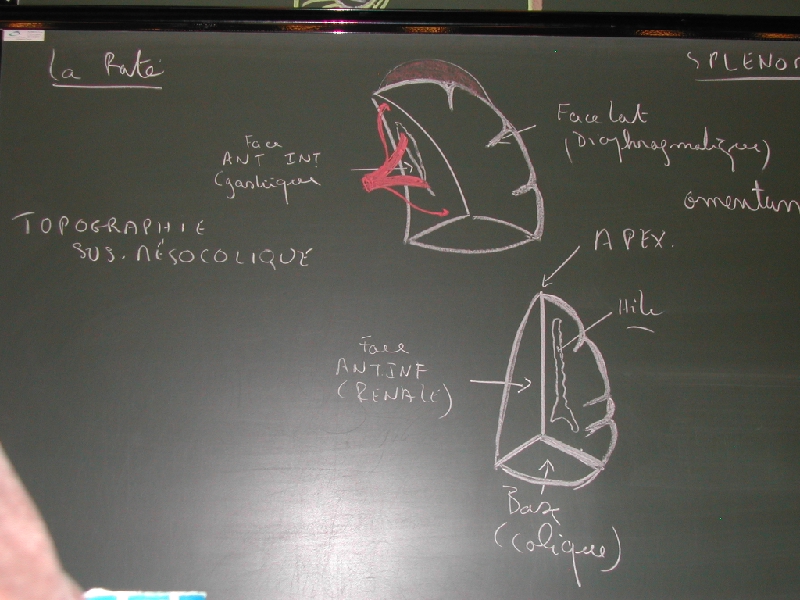 La Rate
SPLENO
Face
ANT INT
(gastrique
Face lat
(Diaphragmatique)
omentum
TOPOGRAPHIE
SUS. MÉSOCOLIQUE
APEX.
Hile
Face
ANT.INF
(RENALE)
Base
(colique)